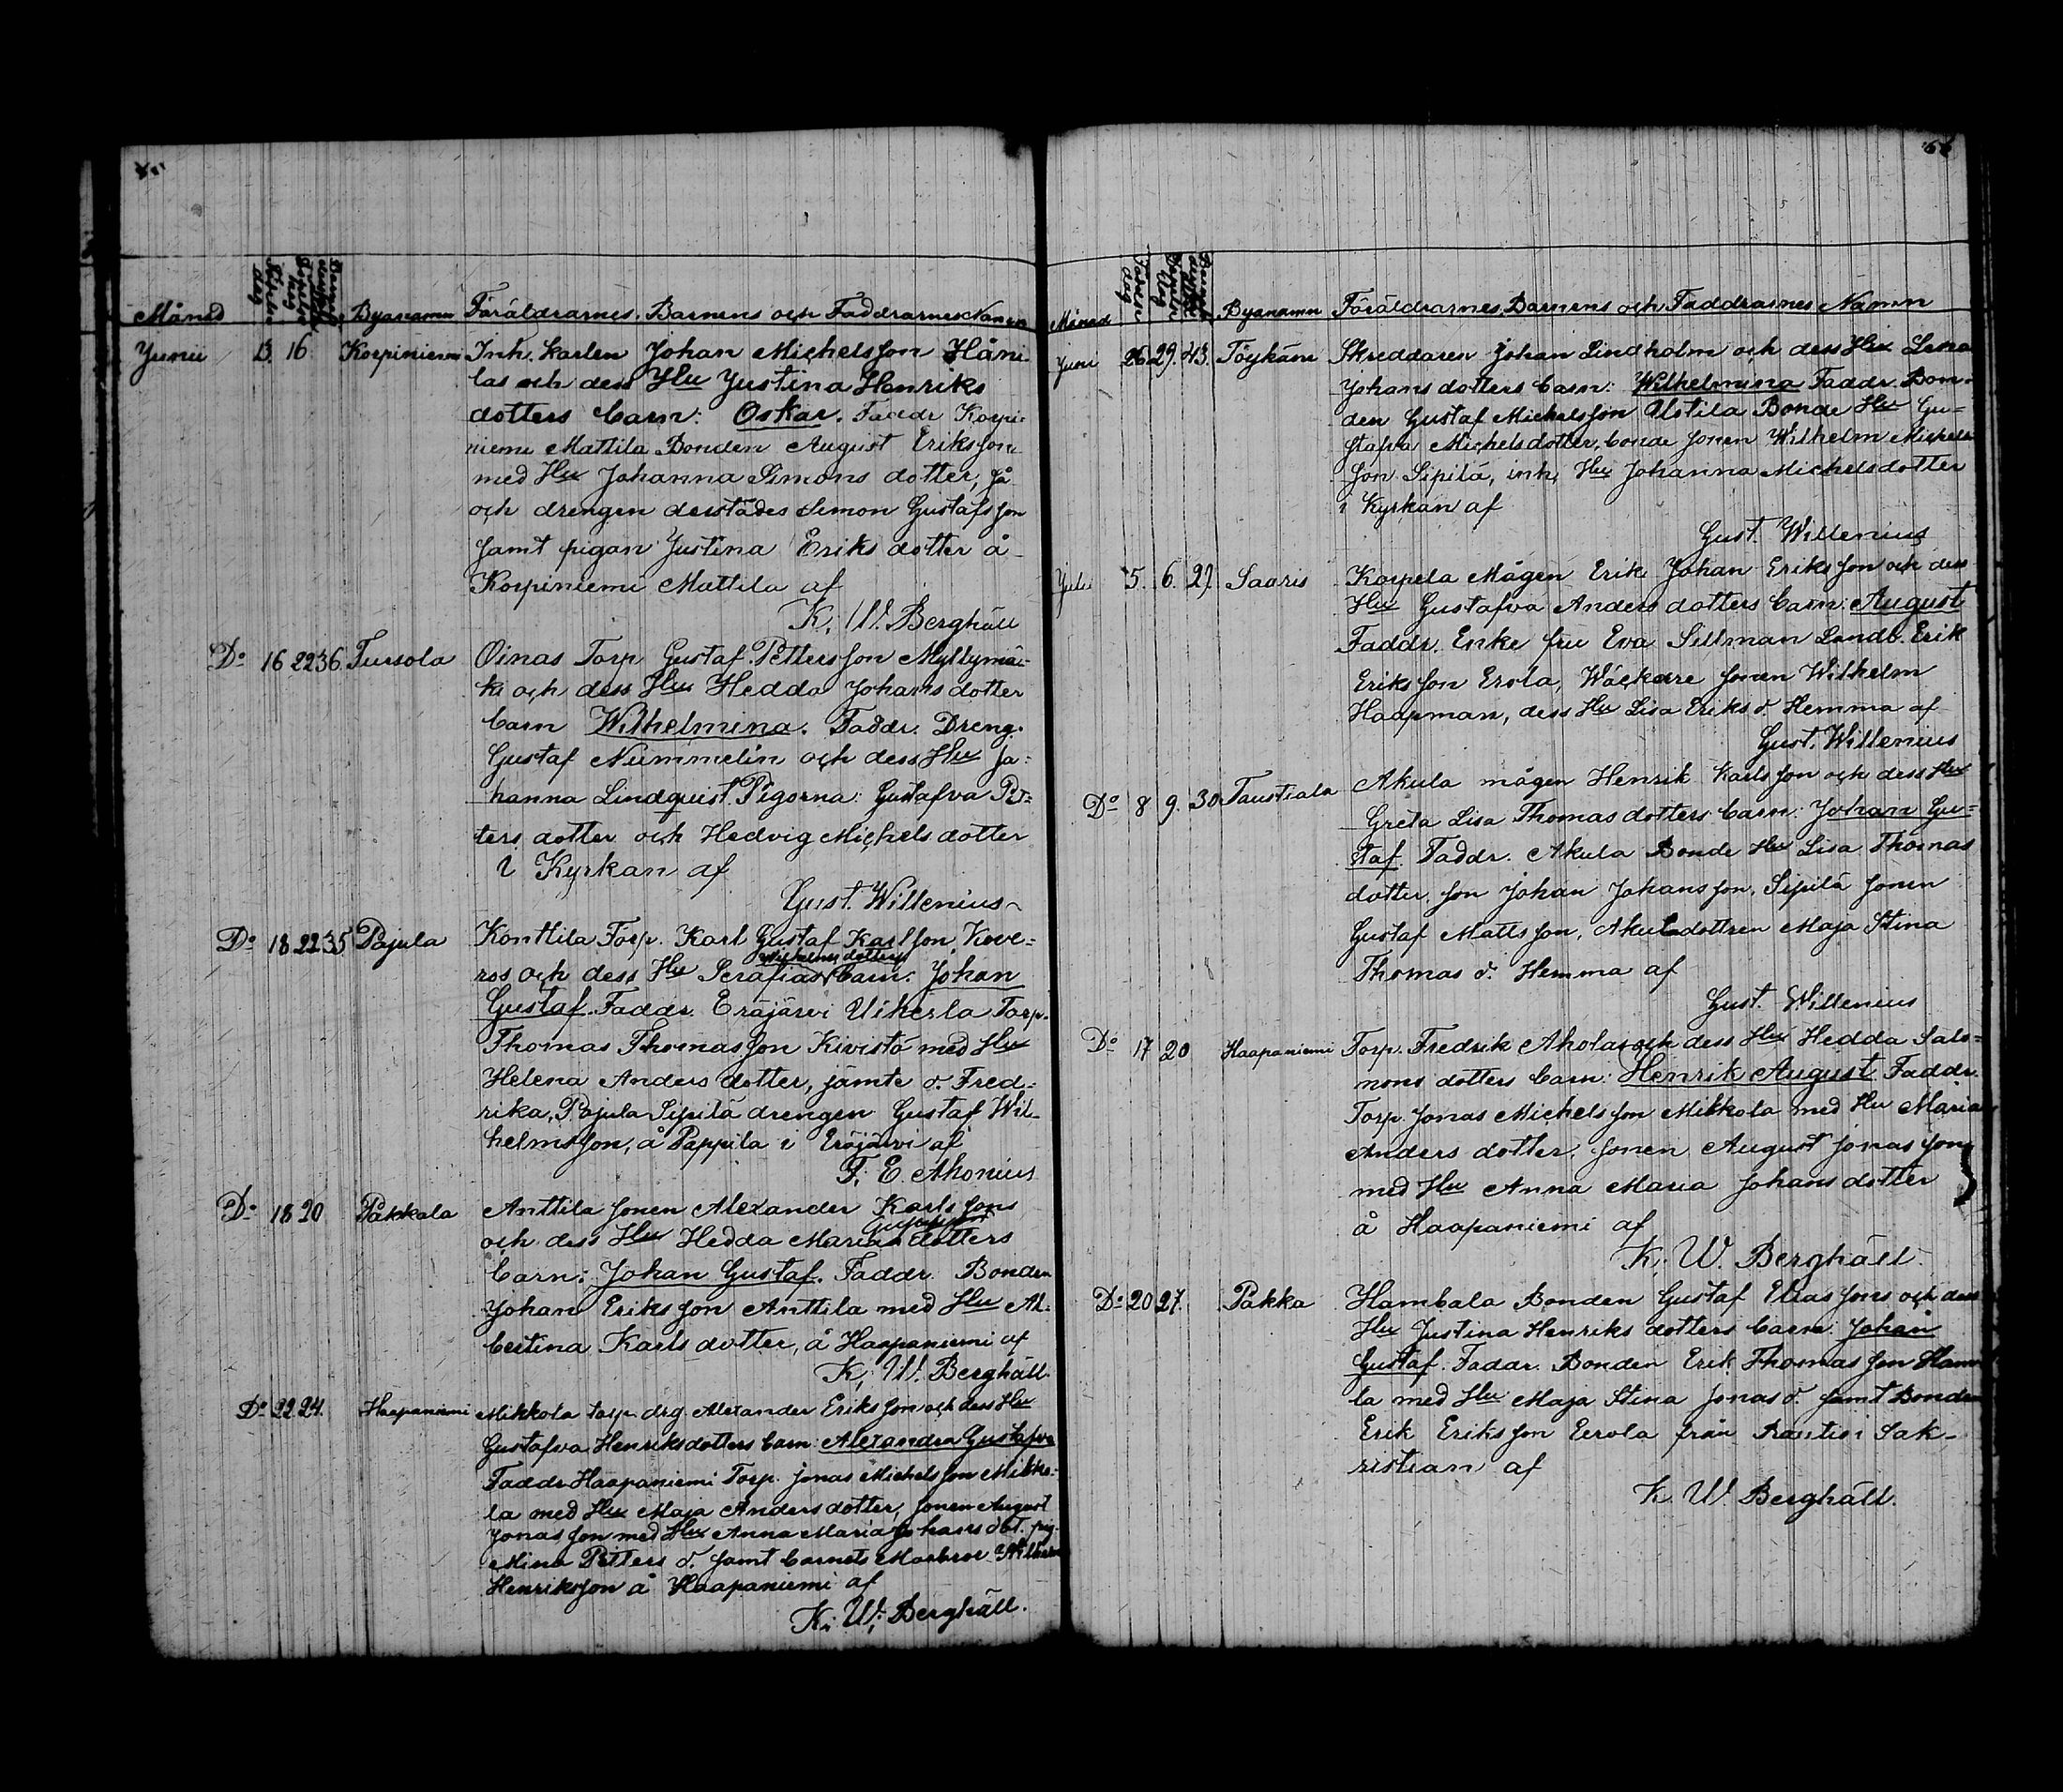 66
Månad Byanamn Föräldrarnes, Barnens och Faddrarnes Namn
Junii 13. 16. Korpiniemi Inh. karlen Johan Michelsson Håni-
las och dess Hu Justina Henriks
dotters barn: Oskar. Faddr Korpi-
niemi Mattila Bonden August Eriksson
med Hu Johanna Simons dotter, så
och drengen derstädes Simon Gustafsson
samt pigan Justina Eriks dotter å
Korpiniemi Mattila af
K. W. Berghäll
Do 16 22 36. Tursola Oinas Torp Gustaf Pettersson Myllymä-
ki och dess Hu Hedda Johans dotter
barn Wilhelmina. Faddr. Dreng.
Gustaf Nummelin och dess Hu Jo-
hanna Lindquist. Pigorna: Gustafva Pet-
ters dotter och Hedvig Michels dotter
i Kyrkan af
Gust. Willenius
Do 18 22 35 Pajula Konttila Torp. Karl Gustaf Karlsson Kove-
ros och dess Hu Serafias Wilhelms dotters barn: Johan
Gustaf. Faddr. Eräjärvi Uiherla Torp.
Thomas Thomasson Kivistö med Hu
Helena Anders dotter, jämte d. Fred-
rika, Pajula Sipilä drengen Gustaf Wil-
helmsson, å Pappila i Eräjärvi af
F. E. Ahonius
Do 18 20 Påkkala Anttila sonen Alexander Karlssons
och dess Hu Hedda Marias dotters
barn: Johan Gustaf. Faddr. Bonden
Johan Eriksson Anttila med Hu Al-
bertina Karls dotter, å Haapaniemi af
K. W. Berghäll.
Do 22 24. Haapaniemi Mikkola torp. drg. Alexander Eriksson och dess Hu
Gustafva Henriksdotters barn: Alexandra Gustafva
Faddr Haapaniemi Torp. Jonas Michelsson Mikko-
la med Hu Maja Anders dotter, sonen August
Jonasson med Hu Anna Maria Johans dot. pig.
Mina Petters d. samt barnets Morbror
Henriksson å Haapaniemi af
K. W. Berghäll.
Månad Byanamn Föräldrarnes, Barnens och Faddrarnes Namn
Juni 26. 29. 43. Töykäm Skreddaren Johan Lindholm och dess Hu Lena
Johans dotters barn: Wilhelmina Faddr. Bon-
den Gustaf Michelsson Uotila Bonde Hu Gu-
stafva Michelsdotter, bonde sonen Wilhelm Michels-
son Sipilä, inh. Hu Johanna Michelsdotter
i Kyrkan af
Gust. Willenius
Juli 5. 6. 27. Saaris Korpela Mågen Erik Johan Eriksson och dess
Hu Gustafva Anders dotters barn: August
Faddr. Enke fru Eva Sillman Landb. Erik
Eriksson Erola, Wäckare sonen Wilhelm
Haapman, dess Hu Lisa Eriks d. Hemma af
Gust. Willenius
Do 8 9. 30. Taustiala Akula mågen Henrik Karlsson och dess Hu
Greta Lisa Thomas dotters barn: Johan Gu-
staf. Faddr. Akula Bonde Hu Lisa Thomas
dotter, son Johan Johansson, Sipilä sonen
Gustaf Mattsson, Akula dottren Maja Stina
Thomas d. Hemma af
Gust. Willenius
Do 17 20 Haapaniemi Torp. Fredrik Ahola och dess Hu Hedda Salo-
mons dotters barn: Henrik August Faddr.
Torp. Jonas Michelsson Mikkola med Hu Maria
Anders dotter, sonen August Jonasson
med Hu Anna Maria Johans dotter
å Haapaniemi af
K. W. Berghäll.
Do 20 27. Pakka Hambala Bonden Gustaf Eliassons och dess
Hu Justina Henriks dotters barn: Johan
Gustaf. Faddr. Bonden Erik Thomasson
la med Hu Maja Stina Jonas d. samt Bonden
Erik Eriksson Eerola från Rautio i Sak-
ristian af
K. W. Berghäll.